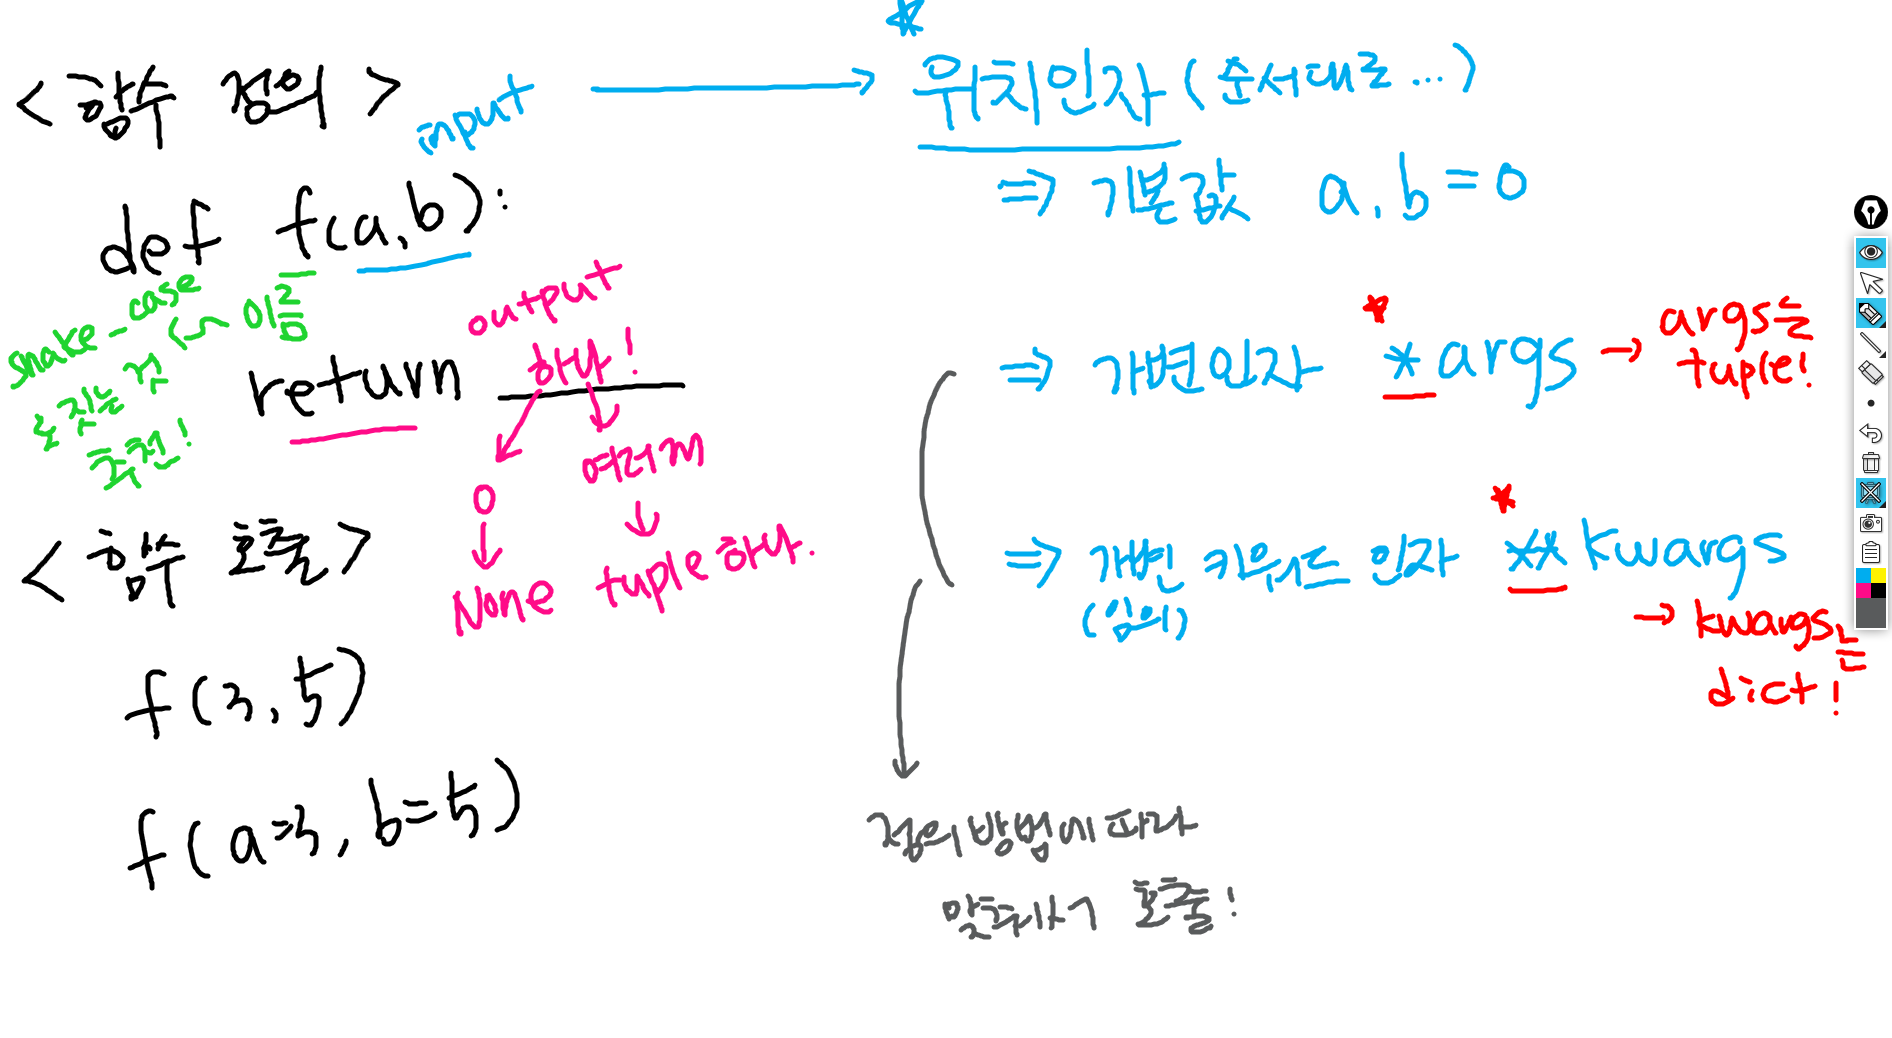 <함수 정의>
input
def f(a,b):
이름
snake_case
로 짓는 것
추천!
output
return 하나!
0
None
여러개
tuple 하나.
<함수 호출>
f(3,5)
f(a=3, b=5)
* 위치인자 (순서대로...)
⇒ 기본값 a, b=0
⇒ 가변인자 *args → args는
tuple!
⇒ 가변 키워드 인자 **kwargs
(임의)
→ kwargs는
dict!
정의 방법에 따라
맞춰서 호출!